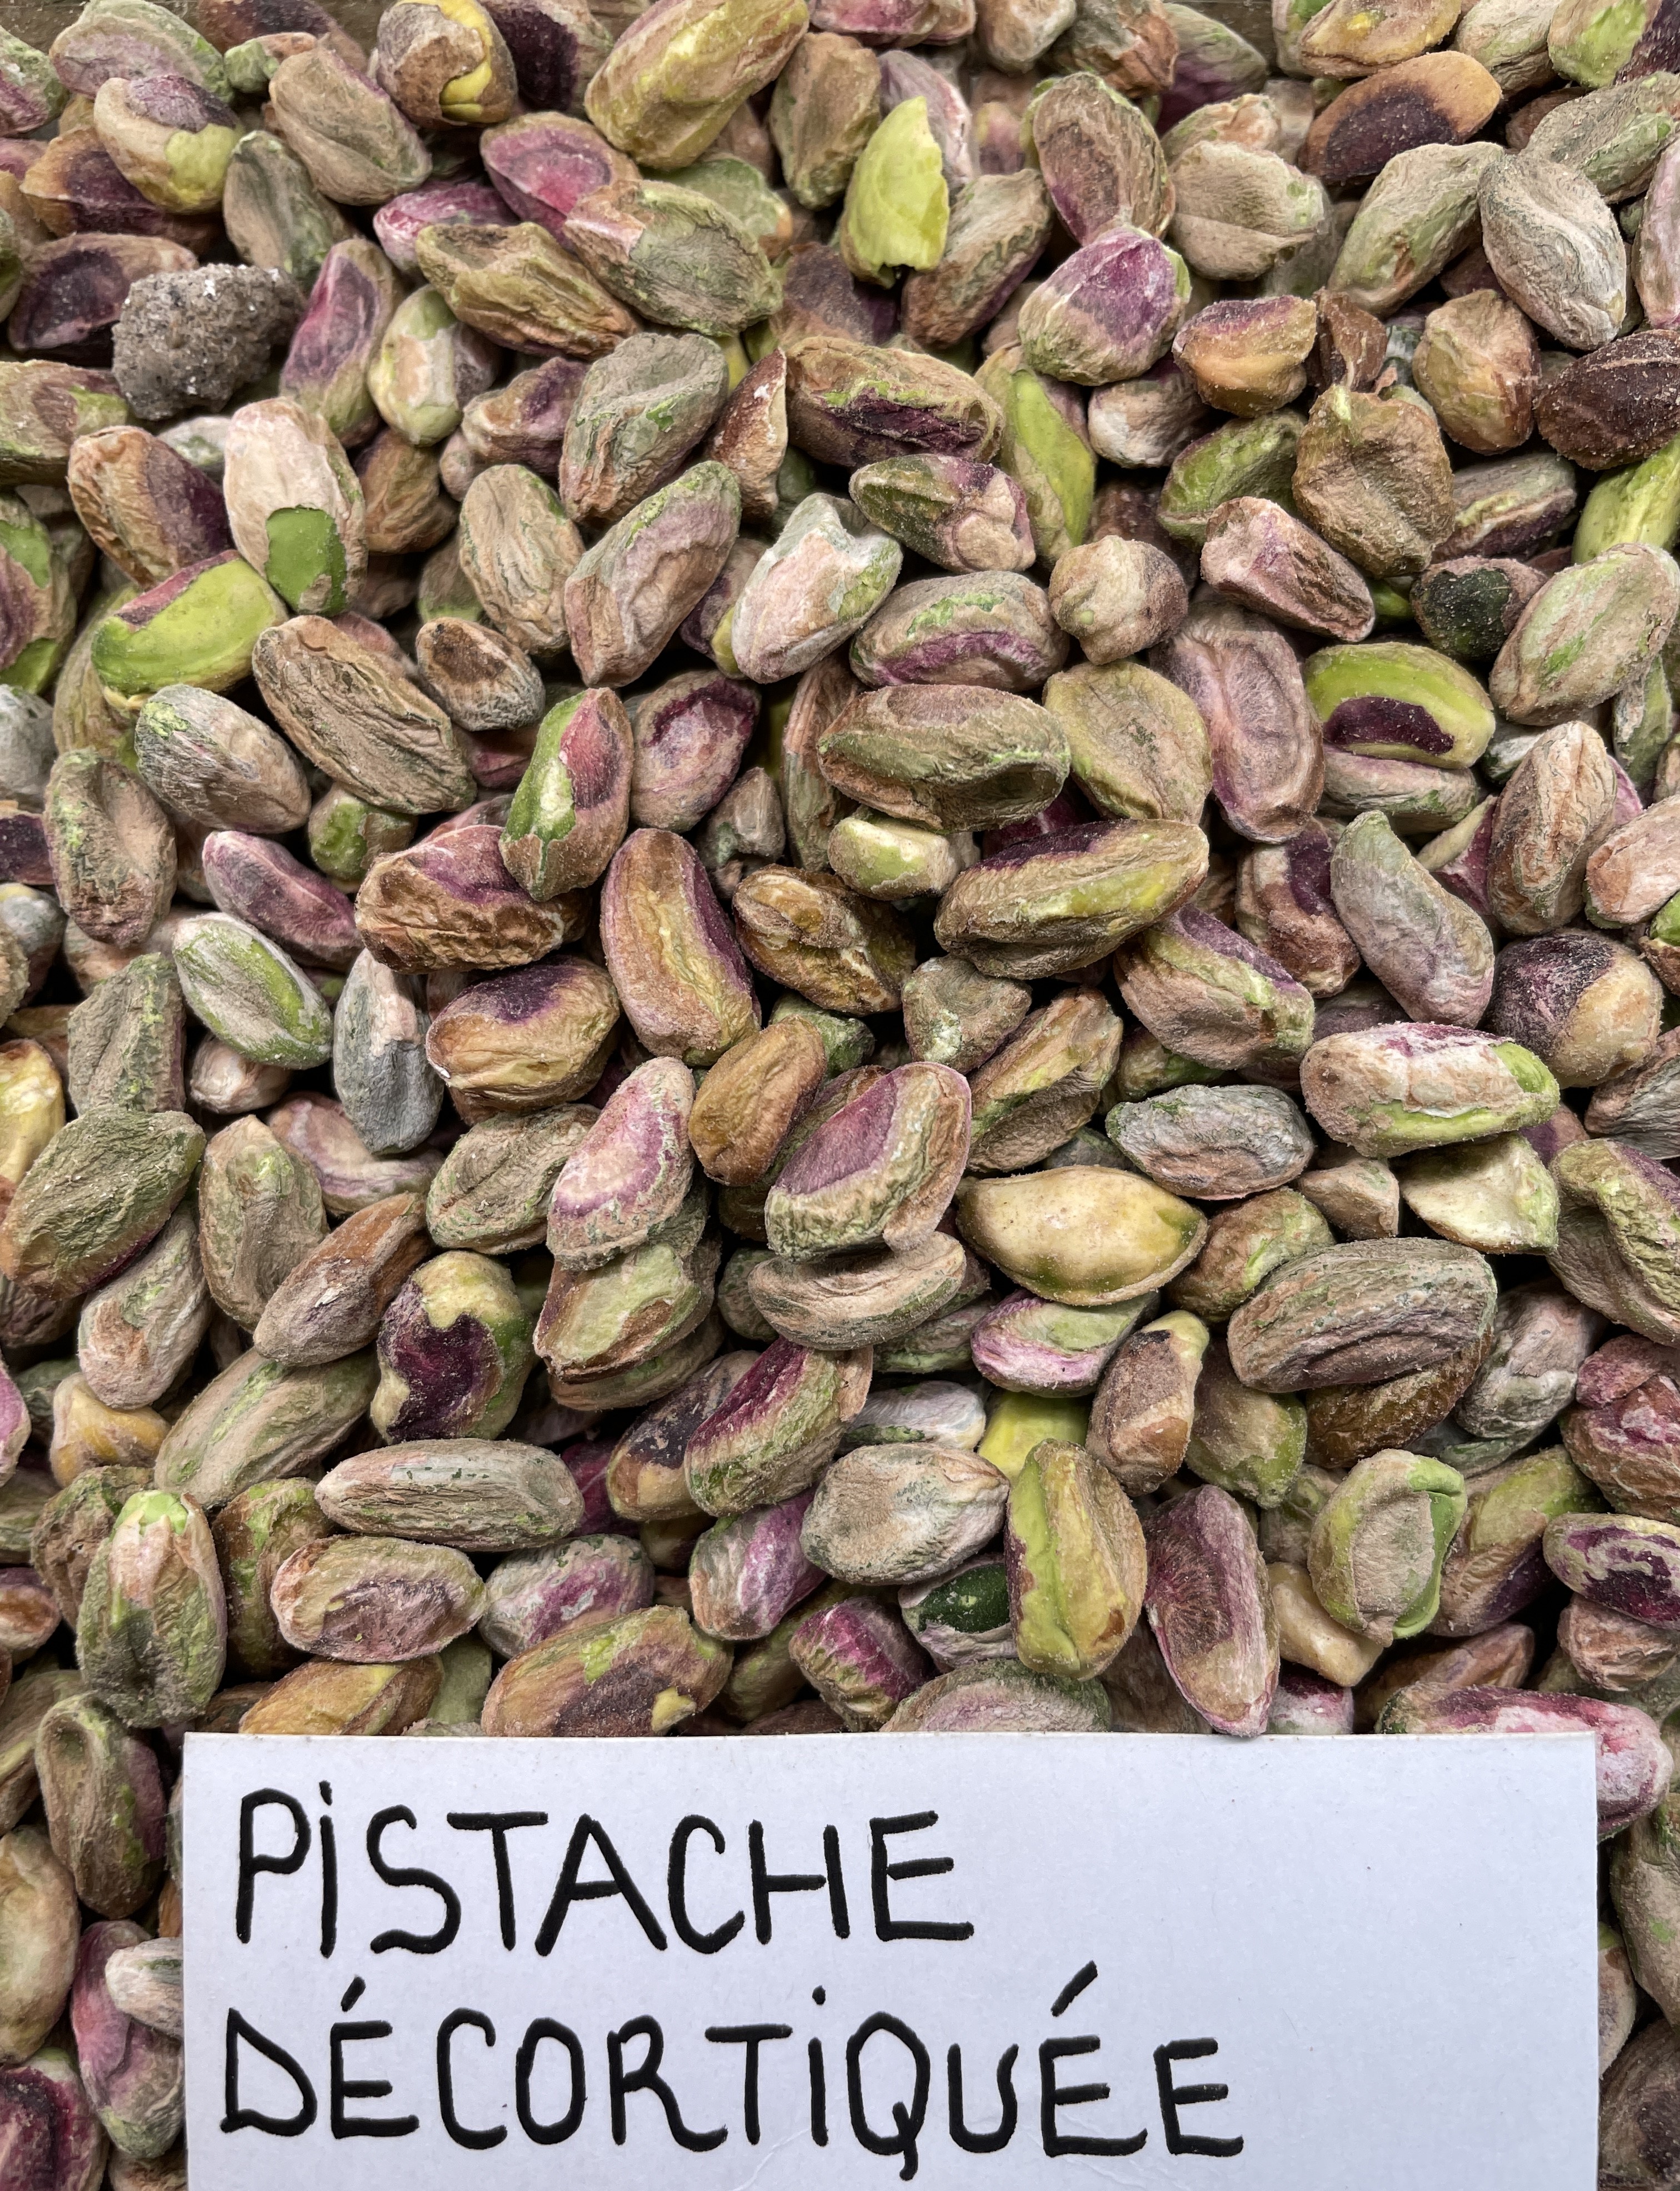 PISTACHE
DÉCORTIQUÉE